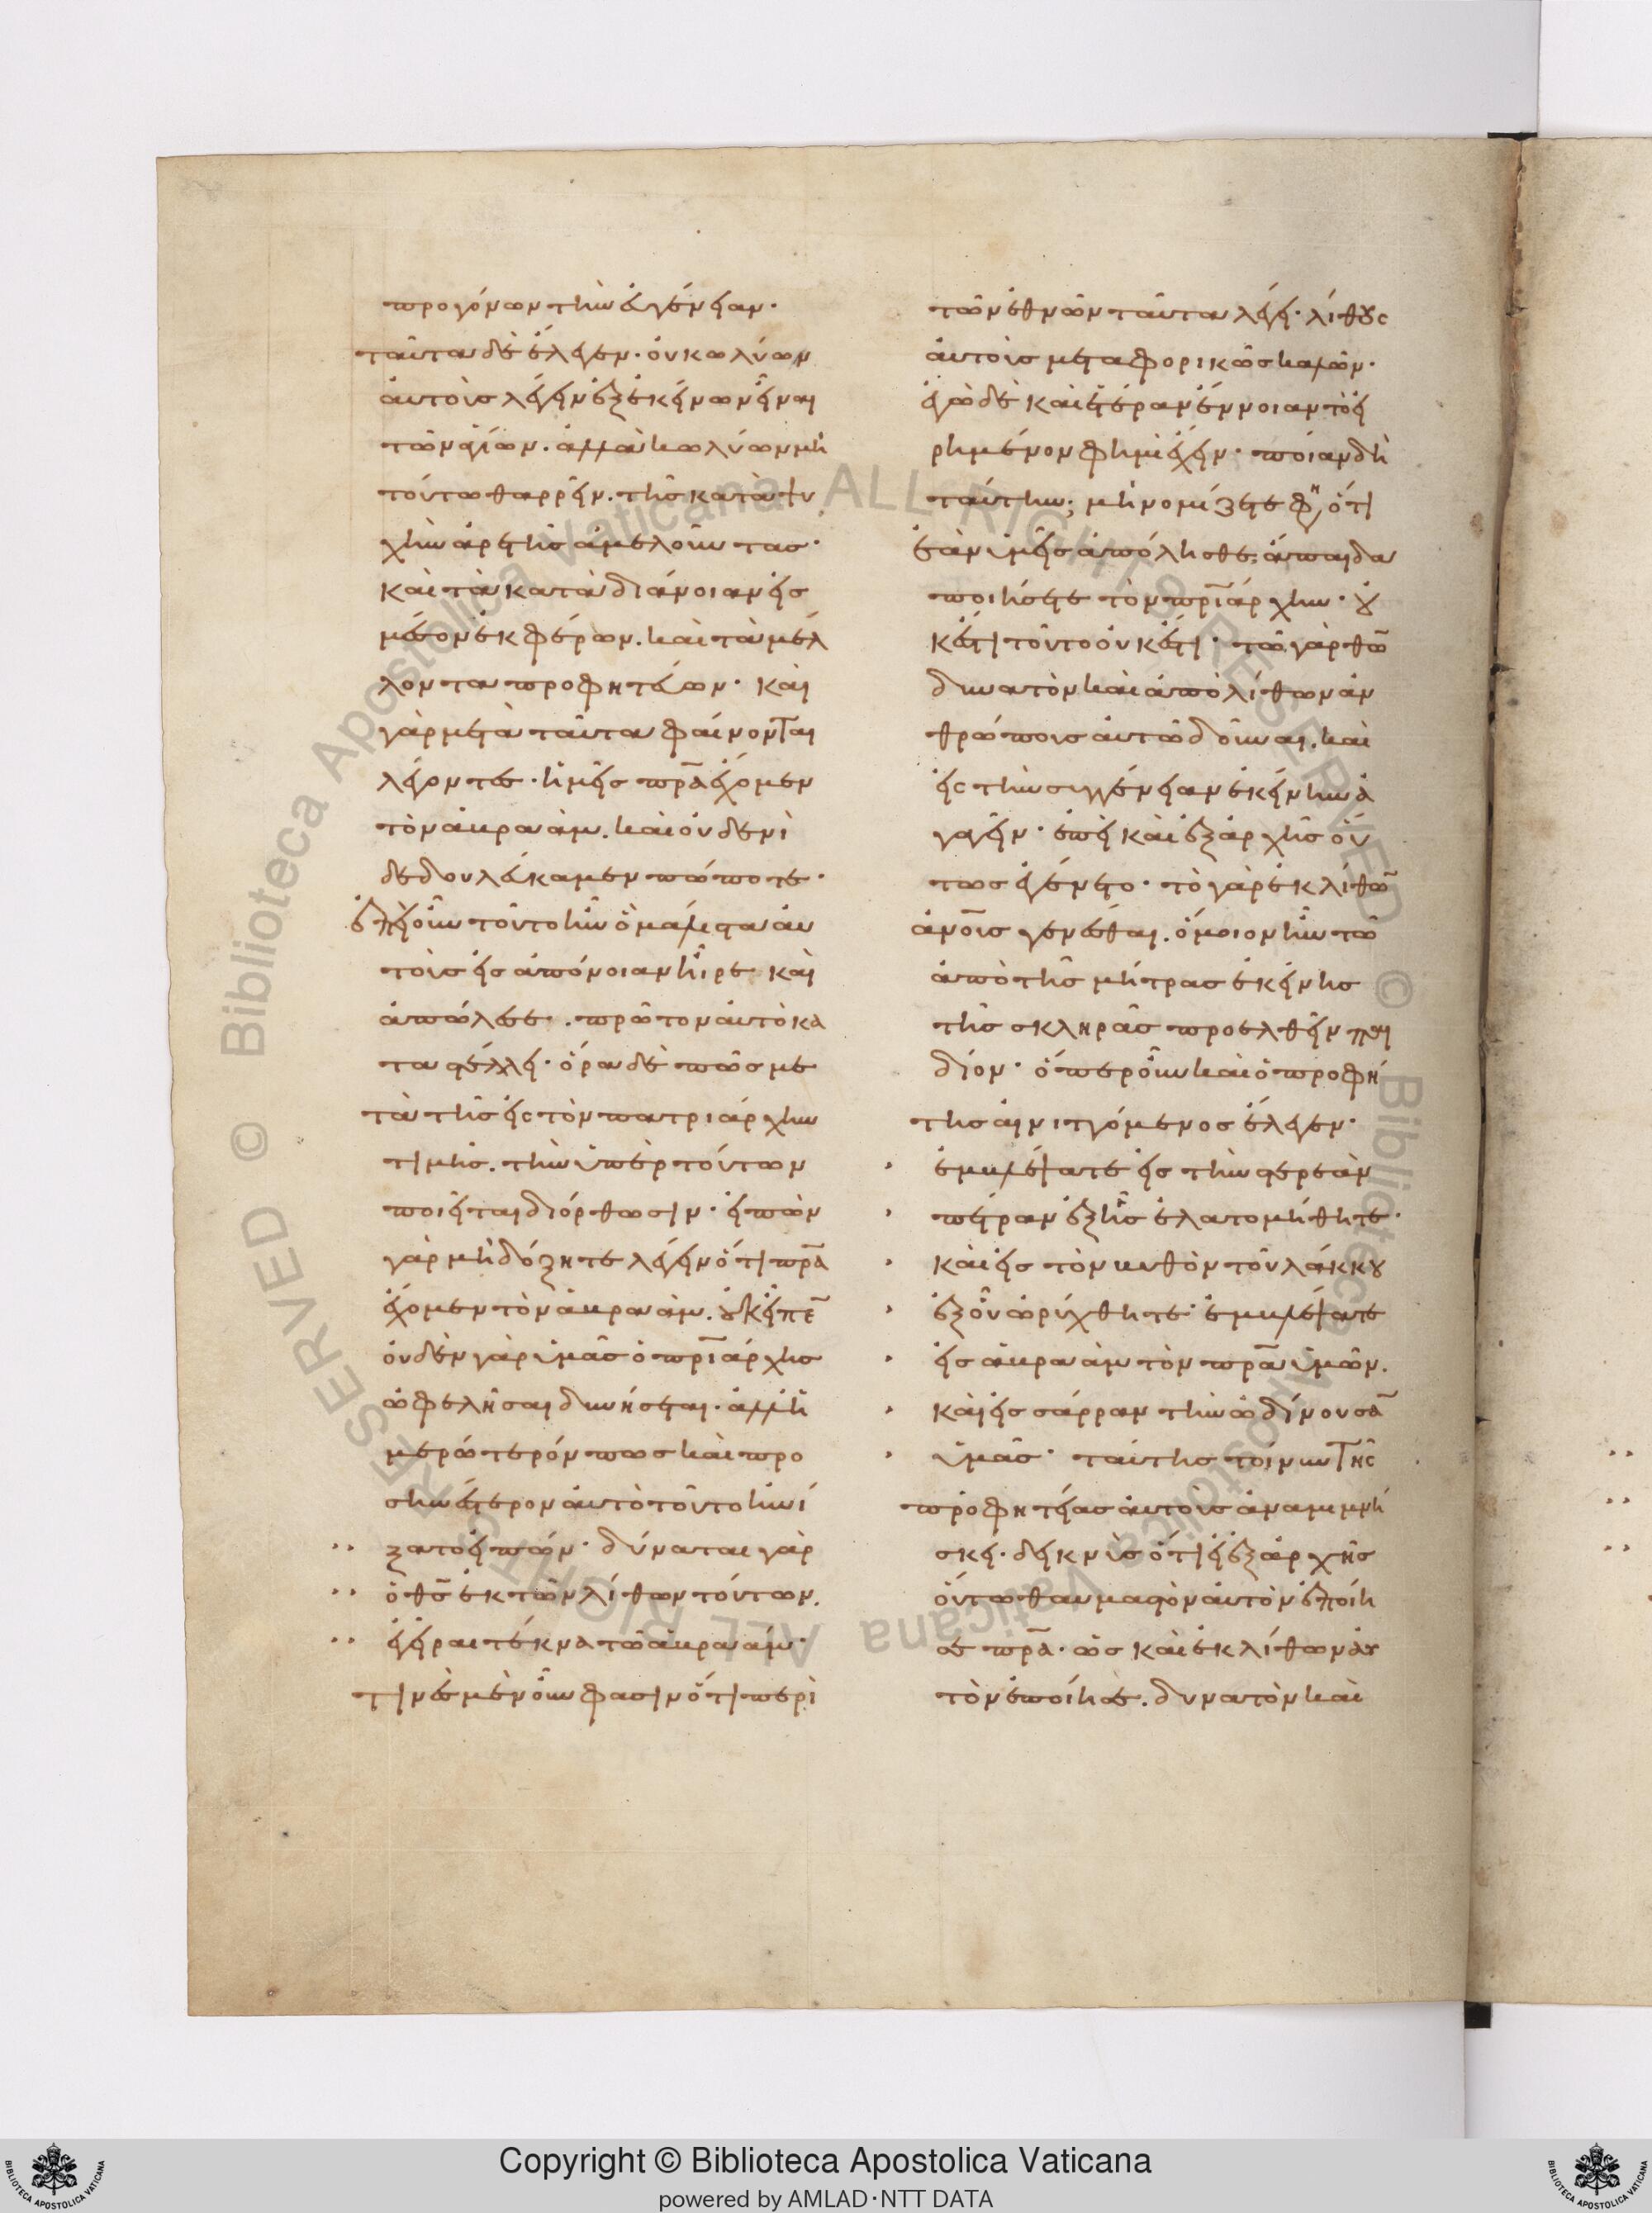 προγόνων τὴν εὐγένειαν·
ταῦτα δὲ ἔλεγεν· οὐ κωλύων
αὐτοὺς λέγειν ἐξ ἐκείνων εἶναι
τῶν ἁγίων. ἀλλὰ κωλύων μὴ
τούτω θαρρεῖν. τῆς κατὰ ψυ
χὴν ἀρετῆς ἀμελοῦντας·
καὶ τὰ κατὰ διάνοιαν εἰς
μέσον ἐκφέρων. καὶ τὰ μέλ
λοντα προφητεύων· καὶ
γὰρ μετὰ ταῦτα φαίνονται
λέγοντες· ἡμεῖς πρα ἔχομεν
τὸν ἀβραάμ. καὶ οὐδενὶ
δεδουλεύκαμεν πώποτε·
ἐπεὶ οὖν τοῦτο ἦν ὃ μάλιστα αὐ
τοὺς εἰς ἀπόνοιαν ἦρε καὶ
ἀπώλεσε. πρῶτον αὐτὸ κα
ταστέλλει· ὅρα δὲ πῶς με
τὰ τῆς εἰς τὸν πατριάρχην
τιμῆς. τὴν ὑπὲρ τούτων
ποιεῖται διόρθωσιν· εἰπὼν
γὰρ μὴ δόξητε λέγειν ὅτι πρα
ἔχομεν τὸν ἀβραάμ. οὐκ εἶπε
οὐδὲν γὰρ ὑμᾶς ὁ πριάρχης
ὠφελῆσαι δυνήσεται. ἀλλ' ἡ
μερώτερόν πως καὶ προ
σηνέστερον αὐτὸ τοῦτο ἠνί
ξατο εἰπών· δύναται γὰρ
ὁ θς ἐκ τῶν λίθων τούτων.
ἐγεῖραι τέκνα τῶ ἀβραάμ·
τινὲς μὲν οὖν φασὶν ὅτι περὶ
τῶν ἐθνῶν ταῦτα λέγει· λίθους
αὐτοὺς μεταφορικῶς καλῶν·
ἐγὼ δὲ καὶ ἑτέραν ἔννοιαν τὸ εἰ
ρημένον φημὶ ἔχειν· ποίαν δὴ
ταύτην; μὴ νομίζετε φη ὅτι
ἐὰν ὑμεῖς ἀπόλησθε, ἄπαιδα
ποιήσετε τὸν πριάρχην· οὐ
κ ἔστι τοῦτο οὐκ ἔστι· τῶ γὰρ θω
δυνατὸν καὶ ἀπὸ λίθων ἀν
θρώπους αὐτῶ δοῦναι. καὶ
εἰς τὴν συγγένειαν ἐκείνην ἀ
γαγεῖν· ἐπεὶ καὶ ἐξ ἀρχῆς οὕ
τως ἐγένετο· τὸ γὰρ ἐκ λίθω
ἀνους γενέσθαι. ὅμοιον ἦν τῶ
ἀπὸ τῆς μήτρας ἐκείνης
τῆς σκληρᾶς προελθεῖν παι
δίον· ὅπερ οὖν καὶ ὁ προφή
της αἰνιττόμενος ἔλεγεν·
ἐμβλέψατε εἰς τὴν στερεὰν
πέτραν ἐξ ἧς ἐλατομήθητε·
καὶ εἰς τὸν βυθὸν τοῦ λάκκου
ἐξ οὗ ὠρύχθητε· ἐμβλέψατε
εἰς ἀβραὰμ τὸν πρα ὑμῶν.
καὶ εἰς σάρραν τὴν ὠδίνουσα
ὑμᾶς· ταύτης τοίνυν τῆς
προφητείας αὐτοὺς ἀναμιμνή
σκει· δεικνὺς ὅτι εἰ ἐξ ἀρχῆς
οὕτω θαυμαστὸν αὐτὸν ἐποίη
σε πρα· ὡς καὶ ἐκ λίθων αὐ
τὸν ἐποίησε. δυνατὸν καὶ
Copyright © Biblioteca Apostolica Vaticana
powered by AMLAD·NTT DATA